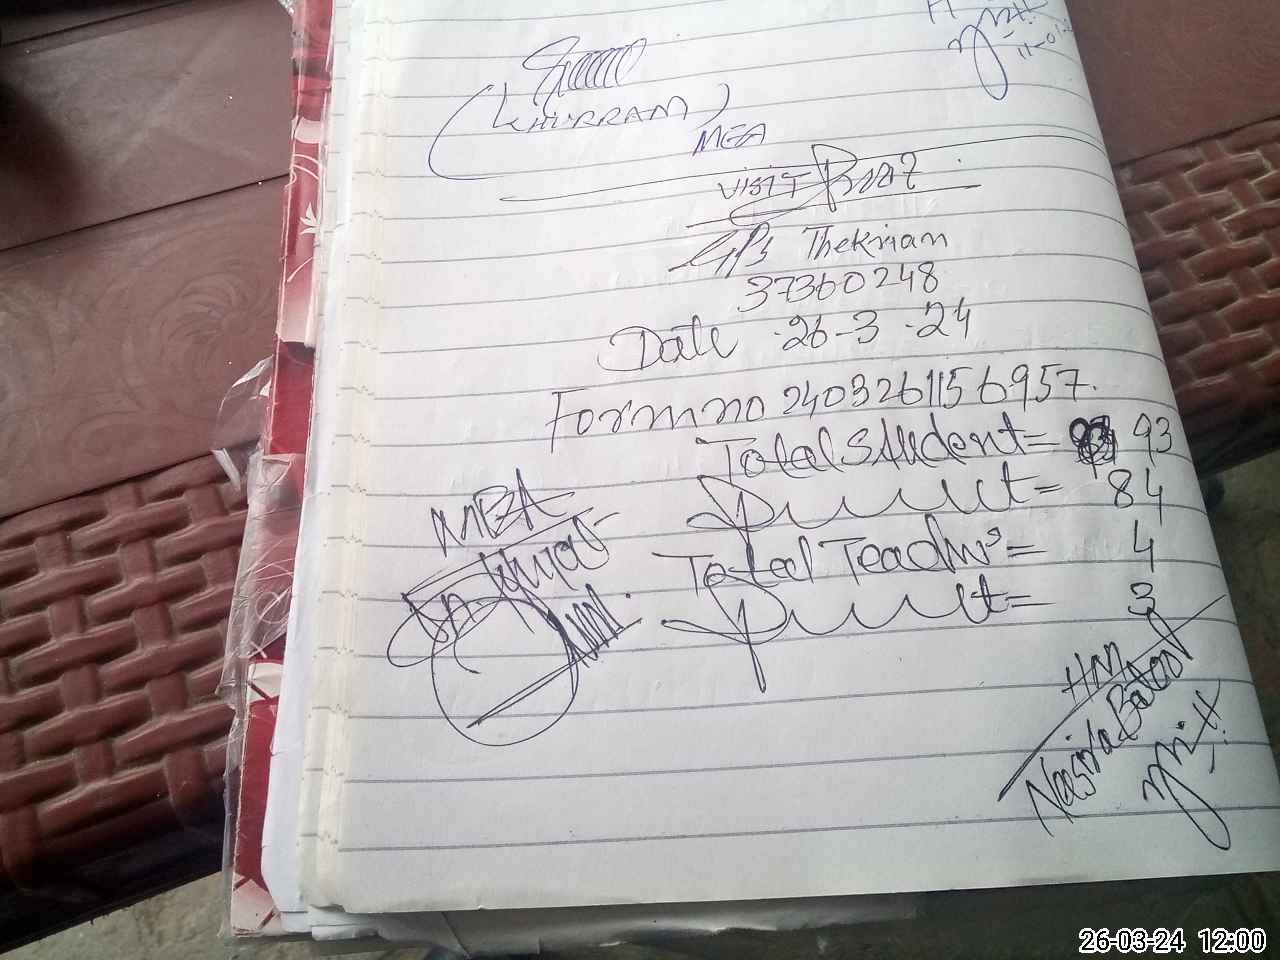 (KHURRAM)
MEA
VISIT Proof
GPS Thekrian
37360248
Date 26-3-24
Form no 2403261156957.
Total Student = 93
Present = 84
Total Teachers = 4
Present = 3
MEA
HM
Nasira Batool
26-03-24 12:00